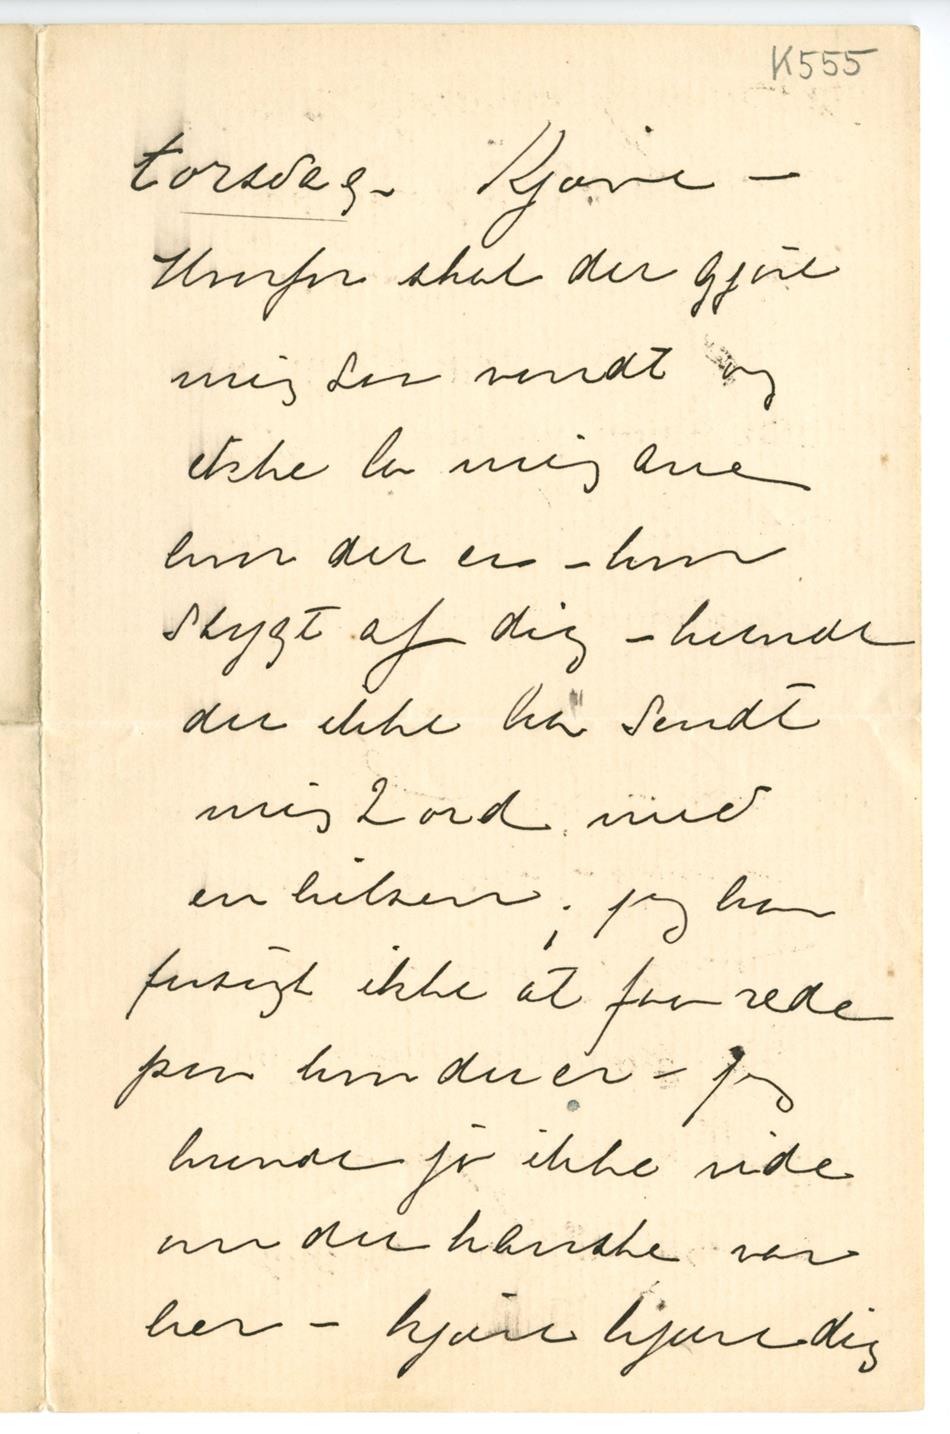 K555
torsdag. Kjære –
Hvorfor skal du gjøre
mig saa vondt og
ikke la mig ane
hvor du er – hvor
stygt af dig – kunde
du ikke ha sendt
mig 2 ord med
en hilsen, jeg har
forsøgt ikke at faa rede
paa hvor du er – jeg
kunde jo ikke vide
om du kanske var
her – kjære kjære dig